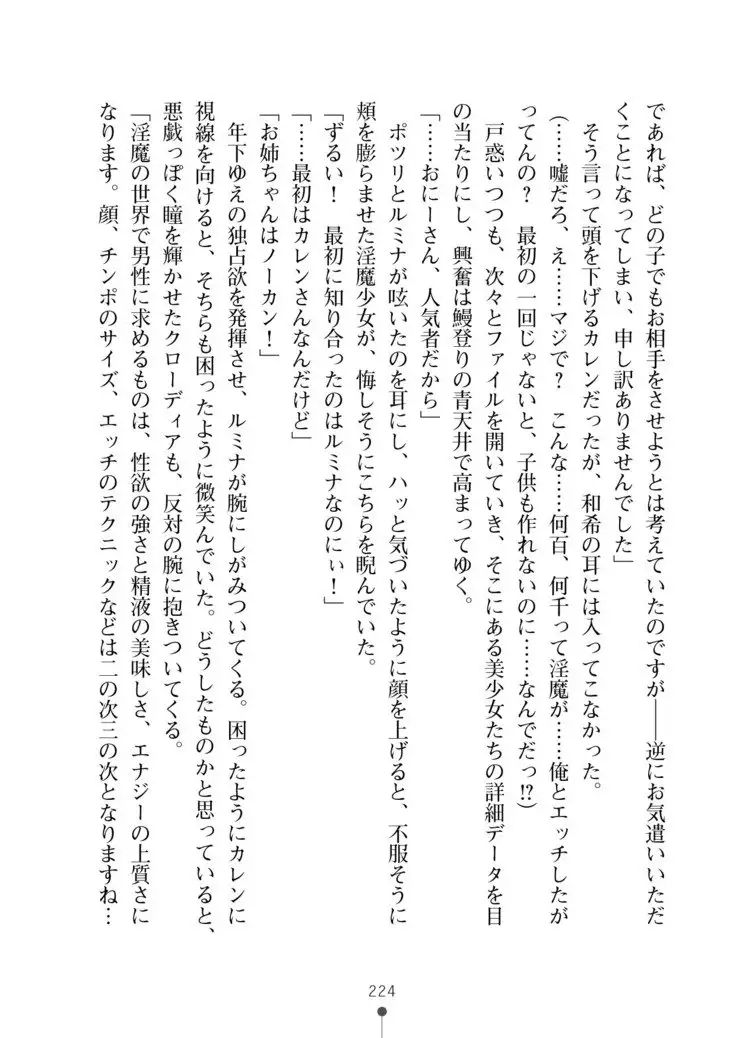 であれば、どの子でもお相手をさせようとは考えていたのですが――逆にお気遣いいただ
くことになってしまい、申し訳ありませんでした」
そう言って頭を下げるカレンだったが、和希の耳には入ってこなかった。
(……嘘だろ、え……マジで？　こんな……何百、何千って淫魔が……俺とエッチしたが
ってんの？　最初の一回じゃないと、子供も作れないのに……なんでだっ⁉)
戸惑いつつも、次々とファイルを開いていき、そこにある美少女たちの詳細データを目
の当たりにし、興奮は鰻登りの青天井で高まってゆく。
「……おにーさん、人気者だから」
ポツリとルミナが呟いたのを耳にし、ハッと気づいたように顔を上げると、不服そうに
頬を膨らませた淫魔少女が、悔しそうにこちらを睨んでいた。
「ずるい！　最初に知り合ったのはルミナなのにぃ！」
「……最初はカレンさんなんだけど」
「お姉ちゃんはノーカン！」
年下ゆえの独占欲を発揮させ、ルミナが腕にしがみついてくる。困ったようにカレンに
視線を向けると、そちらも困ったように微笑んでいた。どうしたものかと思っていると、
悪戯っぽく瞳を輝かせたクローディアも、反対の腕に抱きついてくる。
「淫魔の世界で男性に求めるものは、性欲の強さと精液の美味しさ、エナジーの上質さに
なります。顔、チンポのサイズ、エッチのテクニックなどは二の次三の次となりますね…
224